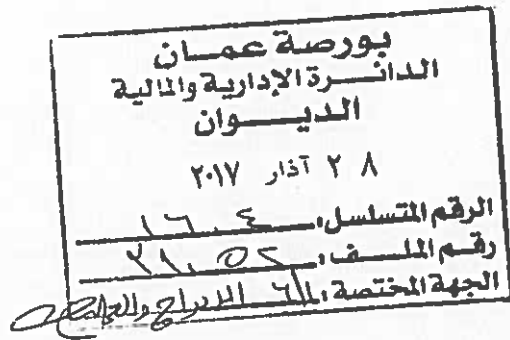 بورصة عمان
الدائرة الإدارية والمالية
الديوان
٢٨ آذار ٢٠١٧
الرقم المتسلسل: ١٦٠٤
رقم الملف:
الجهة المختصة: الإدراج والعمليات